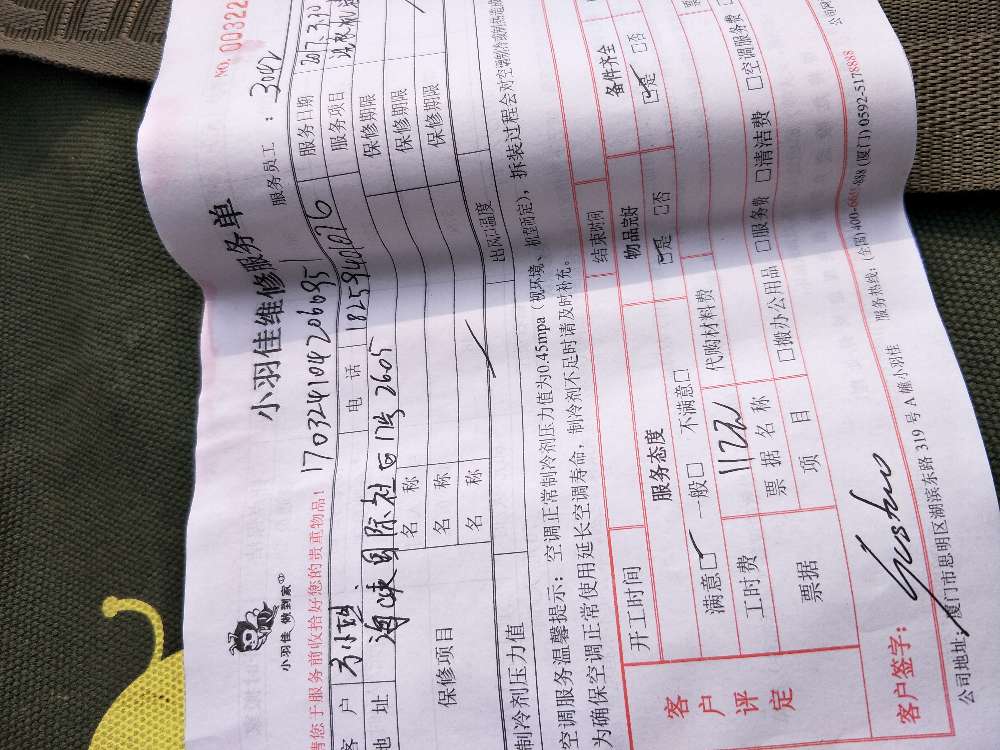 NO. 00322
小羽佳 做到家
小羽佳维修服务单
服务员工：3042
请您于服务前收拾好您的贵重物品！
1703241042066951
服务日期 2017.3.30
客户 方小姐 电话 18259401076 服务项目
地址 海峡国际社区17号2605 保修期限
保修项目 名称 保修期限
名称 保修期限
名称
制冷剂压力值 出风口温度
空调服务温馨提示：空调正常制冷剂压力值为0.45mpa（视环境、机型而定），拆装过程会对空调制冷或制热造成
为确保空调正常使用延长空调寿命，制冷剂不足时请及时补充。
客户评定
开工时间 结束时间
服务态度 物品完好 备件齐全
满意□ 一般□ 不满意□ □是 □否 □是 □否
工时费 1122 代购材料费
票据 票据名称 □搬办公用品 □服务费 □清洁费 □空调服务费
项目
客户签字：
公司地址：厦门市思明区湖滨东路 319 号 A 幢小羽佳 服务热线：(全国)400-6666-888 (厦门)0592-5178888 公司网